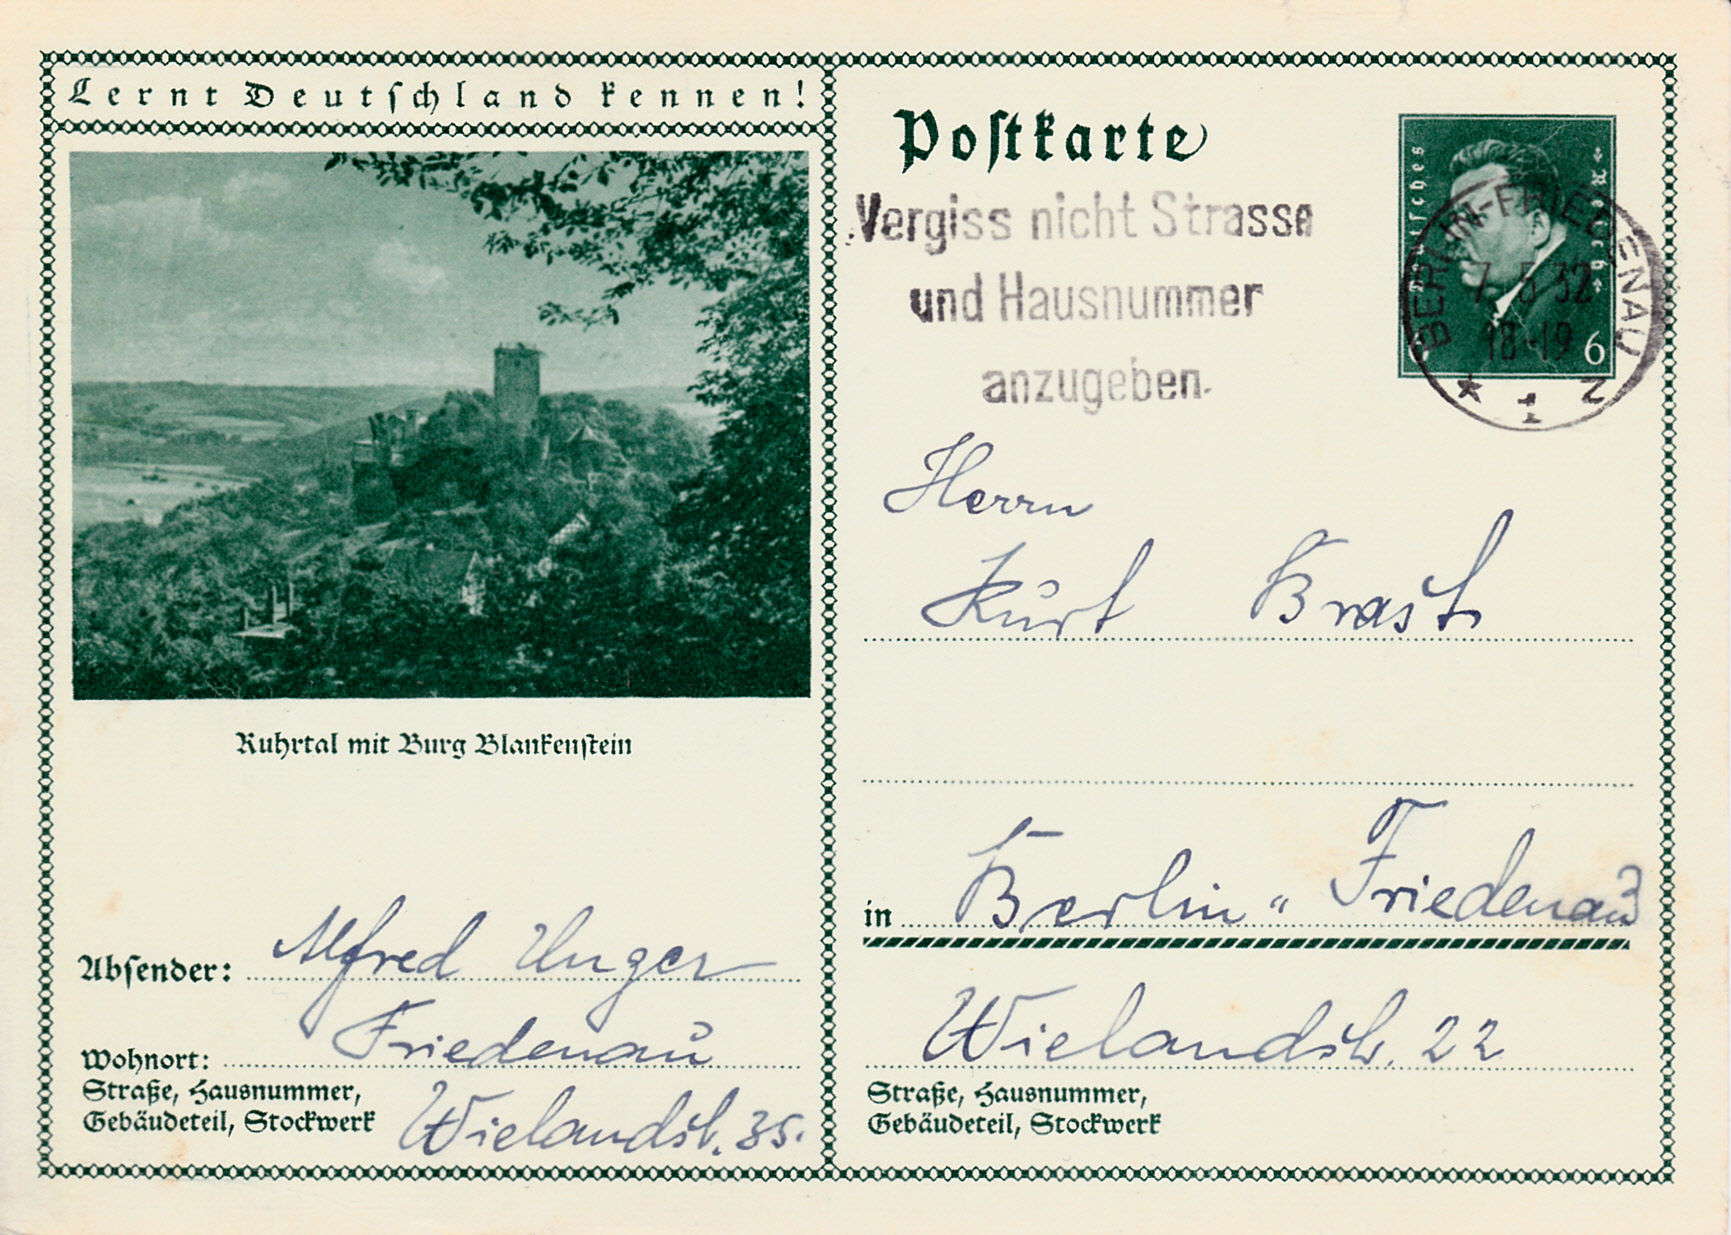 Lernt Deutschland kennen!
Ruhrtal mit Burg Blankenstein
Absender: Alfred Unger
Wohnort: Friedenau
Straße, Hausnummer,
Gebäudeteil, Stockwerk Wielandstr. 35.
Postkarte
Vergiss nicht Strasse
und Hausnummer
anzugeben.
Deutsches Reich
6 6
BERLIN-FRIEDENAU
7.5.32
18-19
* 1 z
Herrn
Kurt Brast
in Berlin-Friedenau
Wielandstr. 22
Straße, Hausnummer,
Gebäudeteil, Stockwerk